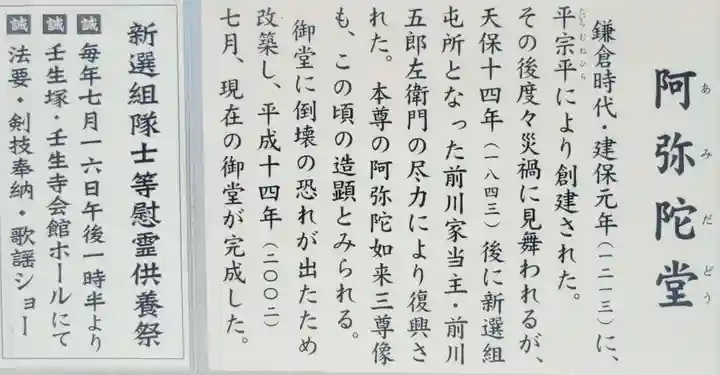 阿弥陀堂
あみだどう
鎌倉時代・建保元年(一二一三)に、
平宗平により創建された。
たいらむねひら
その後度々災禍に見舞われるが、
天保十四年(一八四三)後に新選組
屯所となった前川家当主・前川
五郎左衛門の尽力により復興さ
れた。 本尊の阿弥陀如来三尊像
も、この頃の造顕とみられる。
御堂に倒壊の恐れが出たため
改築し、平成十四年(二〇〇二)
七月、現在の御堂が完成した。
新選組隊士等慰霊供養祭
誠 毎年七月一六日午後一時半より
誠 壬生塚・壬生寺会館ホールにて
誠 法要・剣技奉納・歌謡ショー